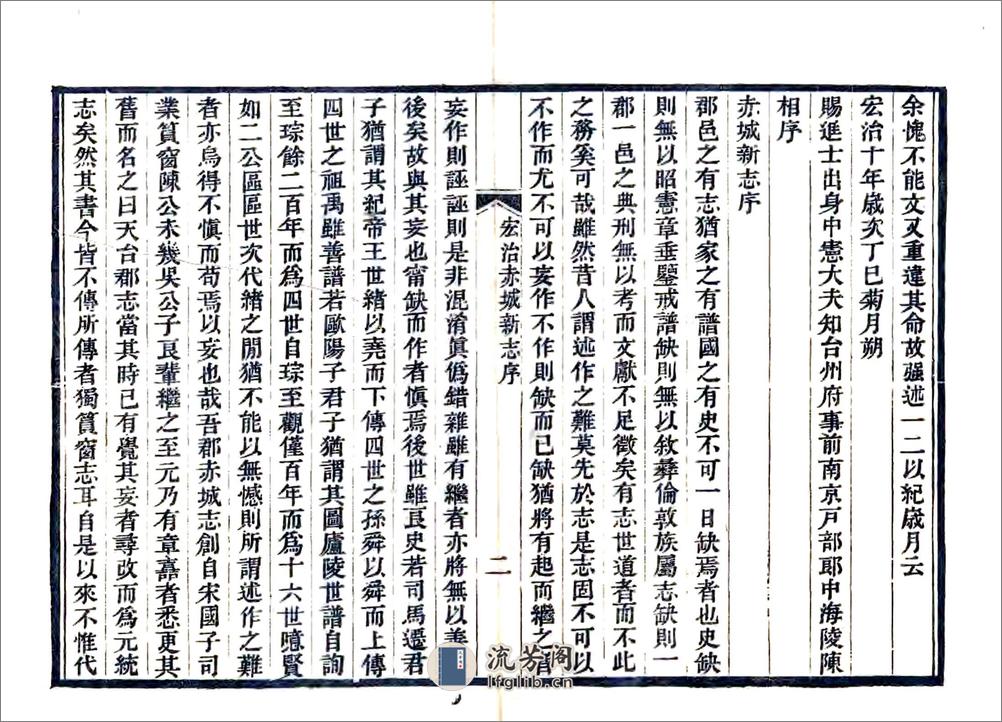 余愧不能文又重違其命故强述一二以紀歲月云
宏治十年歲次丁巳菊月朔
賜進士出身中憲大夫知台州府事前南京戸部郎中海陵陳
相序
赤城新志序
郡邑之有志猶家之有譜國之有史不可一日缺焉者也史缺
則無以昭憲章垂鑒戒譜缺則無以敘彝倫敦族屬志缺則一
郡一邑之典刑無以考而文獻不足徵矣有志世道者而不此
之務奚可哉雖然昔人謂述作之難莫先於志是志固不可以
不作而尤不可以妄作不作則缺而已缺猶將有起而繼之者
宏治赤城新志序
二
妄作則誣誣則是非混淆眞僞錯雜雖有繼者亦將無以善
後矣故與其妄也甯缺而作者愼焉後世雖良史若司馬遷君
子猶謂其紀帝王世緒以堯而下傳四世之孫舜以舜而上傳
四世之祖禹雖善譜若歐陽子君子猶謂其圖廬陵世譜自詢
至琮餘二百年而爲四世自琮至觀僅百年而爲十六世噫賢
如二公區區世次代緒之閒猶不能以無憾則所謂述作之難
者亦烏得不愼而苟焉以妄也哉吾郡赤城志創自宋國子司
業篔窗陳公未幾吳公子良輩繼之至元乃有章嚞者悉更其
舊而名之曰天台郡志當其時已有覺其妄者尋改而爲元統
志矣然其書今皆不傳所傳者獨篔窗志耳自是以來不惟代
流芳阁
lfglib.cn